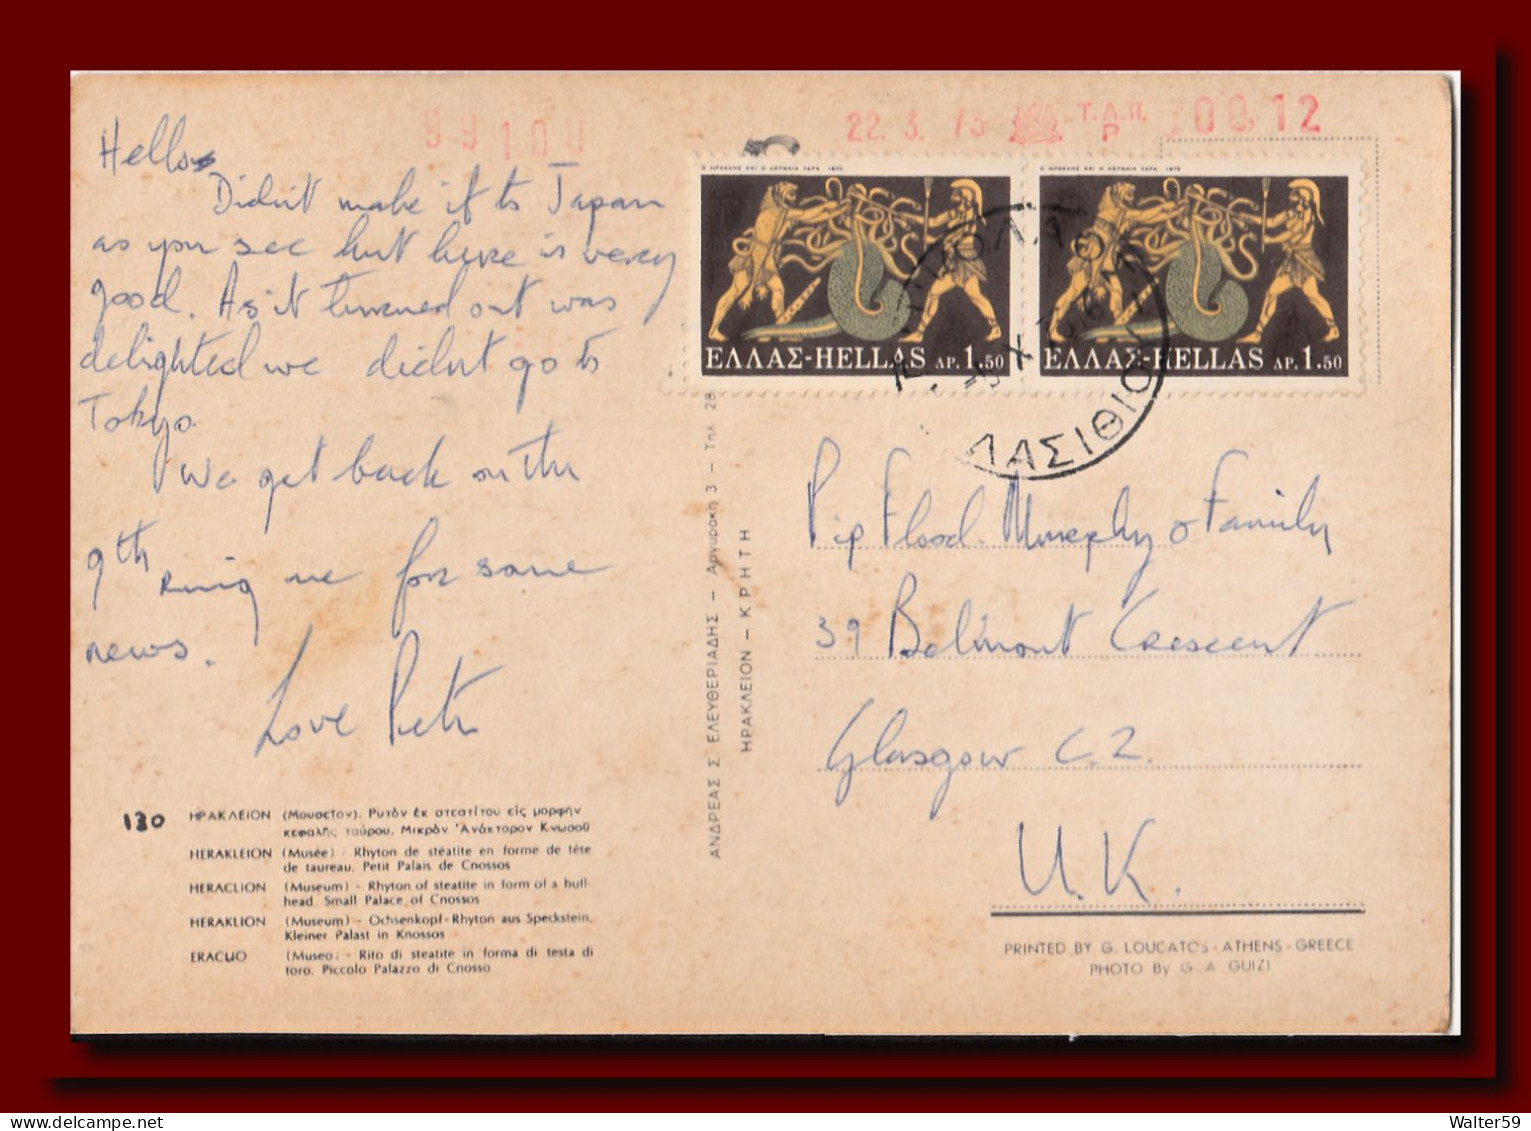 99100
22. 3. 73 Τ.Α.Π. Ρ 00,12
Hello
Didn't make it to Japan
as you see but here is very
good. As it turned out was
delighted we didn't go to
Tokyo.
We get back on the
9th ring me for some
news.
Love Peter
Ο ΗΡΑΚΛΗΣ ΚΑΙ Η ΛΕΡΝΑΙΑ ΥΔΡΑ 1970
ΕΛΛΑΣ-HELLAS ΔΡ. 1.50
Ο ΗΡΑΚΛΗΣ ΚΑΙ Η ΛΕΡΝΑΙΑ ΥΔΡΑ 1970
ΕΛΛΑΣ-HELLAS ΔΡ. 1.50
ΛΑΣΙΘΙΟΥ
Pip Flood-Murphy & Family
39 Belmont Crescent
Glasgow C.2.
U.K.
ΑΝΔΡΕΑΣ Σ ΕΛΕΥΘΕΡΙΑΔΗΣ – Αργυράκη 3 – Τηλ 28
ΗΡΑΚΛΕΙΟΝ – ΚΡΗΤΗ
130
ΗΡΑΚΛΕΙΟΝ (Μουσεῖον). Ρυτὸν ἐκ στεατίτου εἰς μορφὴν
κεφαλῆς ταύρου. Μικρὸν Ἀνάκτορον Κνωσοῦ
HERAKLEION (Musée) - Rhyton de stéatite en forme de tête
de taureau. Petit Palais de Cnossos
HERACLION (Museum) - Rhyton of steatite in form of a bull-
head. Small Palace of Cnossos
HERAKLION (Museum) - Ochsenkopf-Rhyton aus Speckstein.
Kleiner Palast in Knossos
ERACLIO (Museo) - Rito di steatite in forma di testa di
toro. Piccolo Palazzo di Cnosso
PRINTED BY G. LOUCATOS - ATHENS - GREECE
PHOTO BY G. A. GUIZI
Walter59